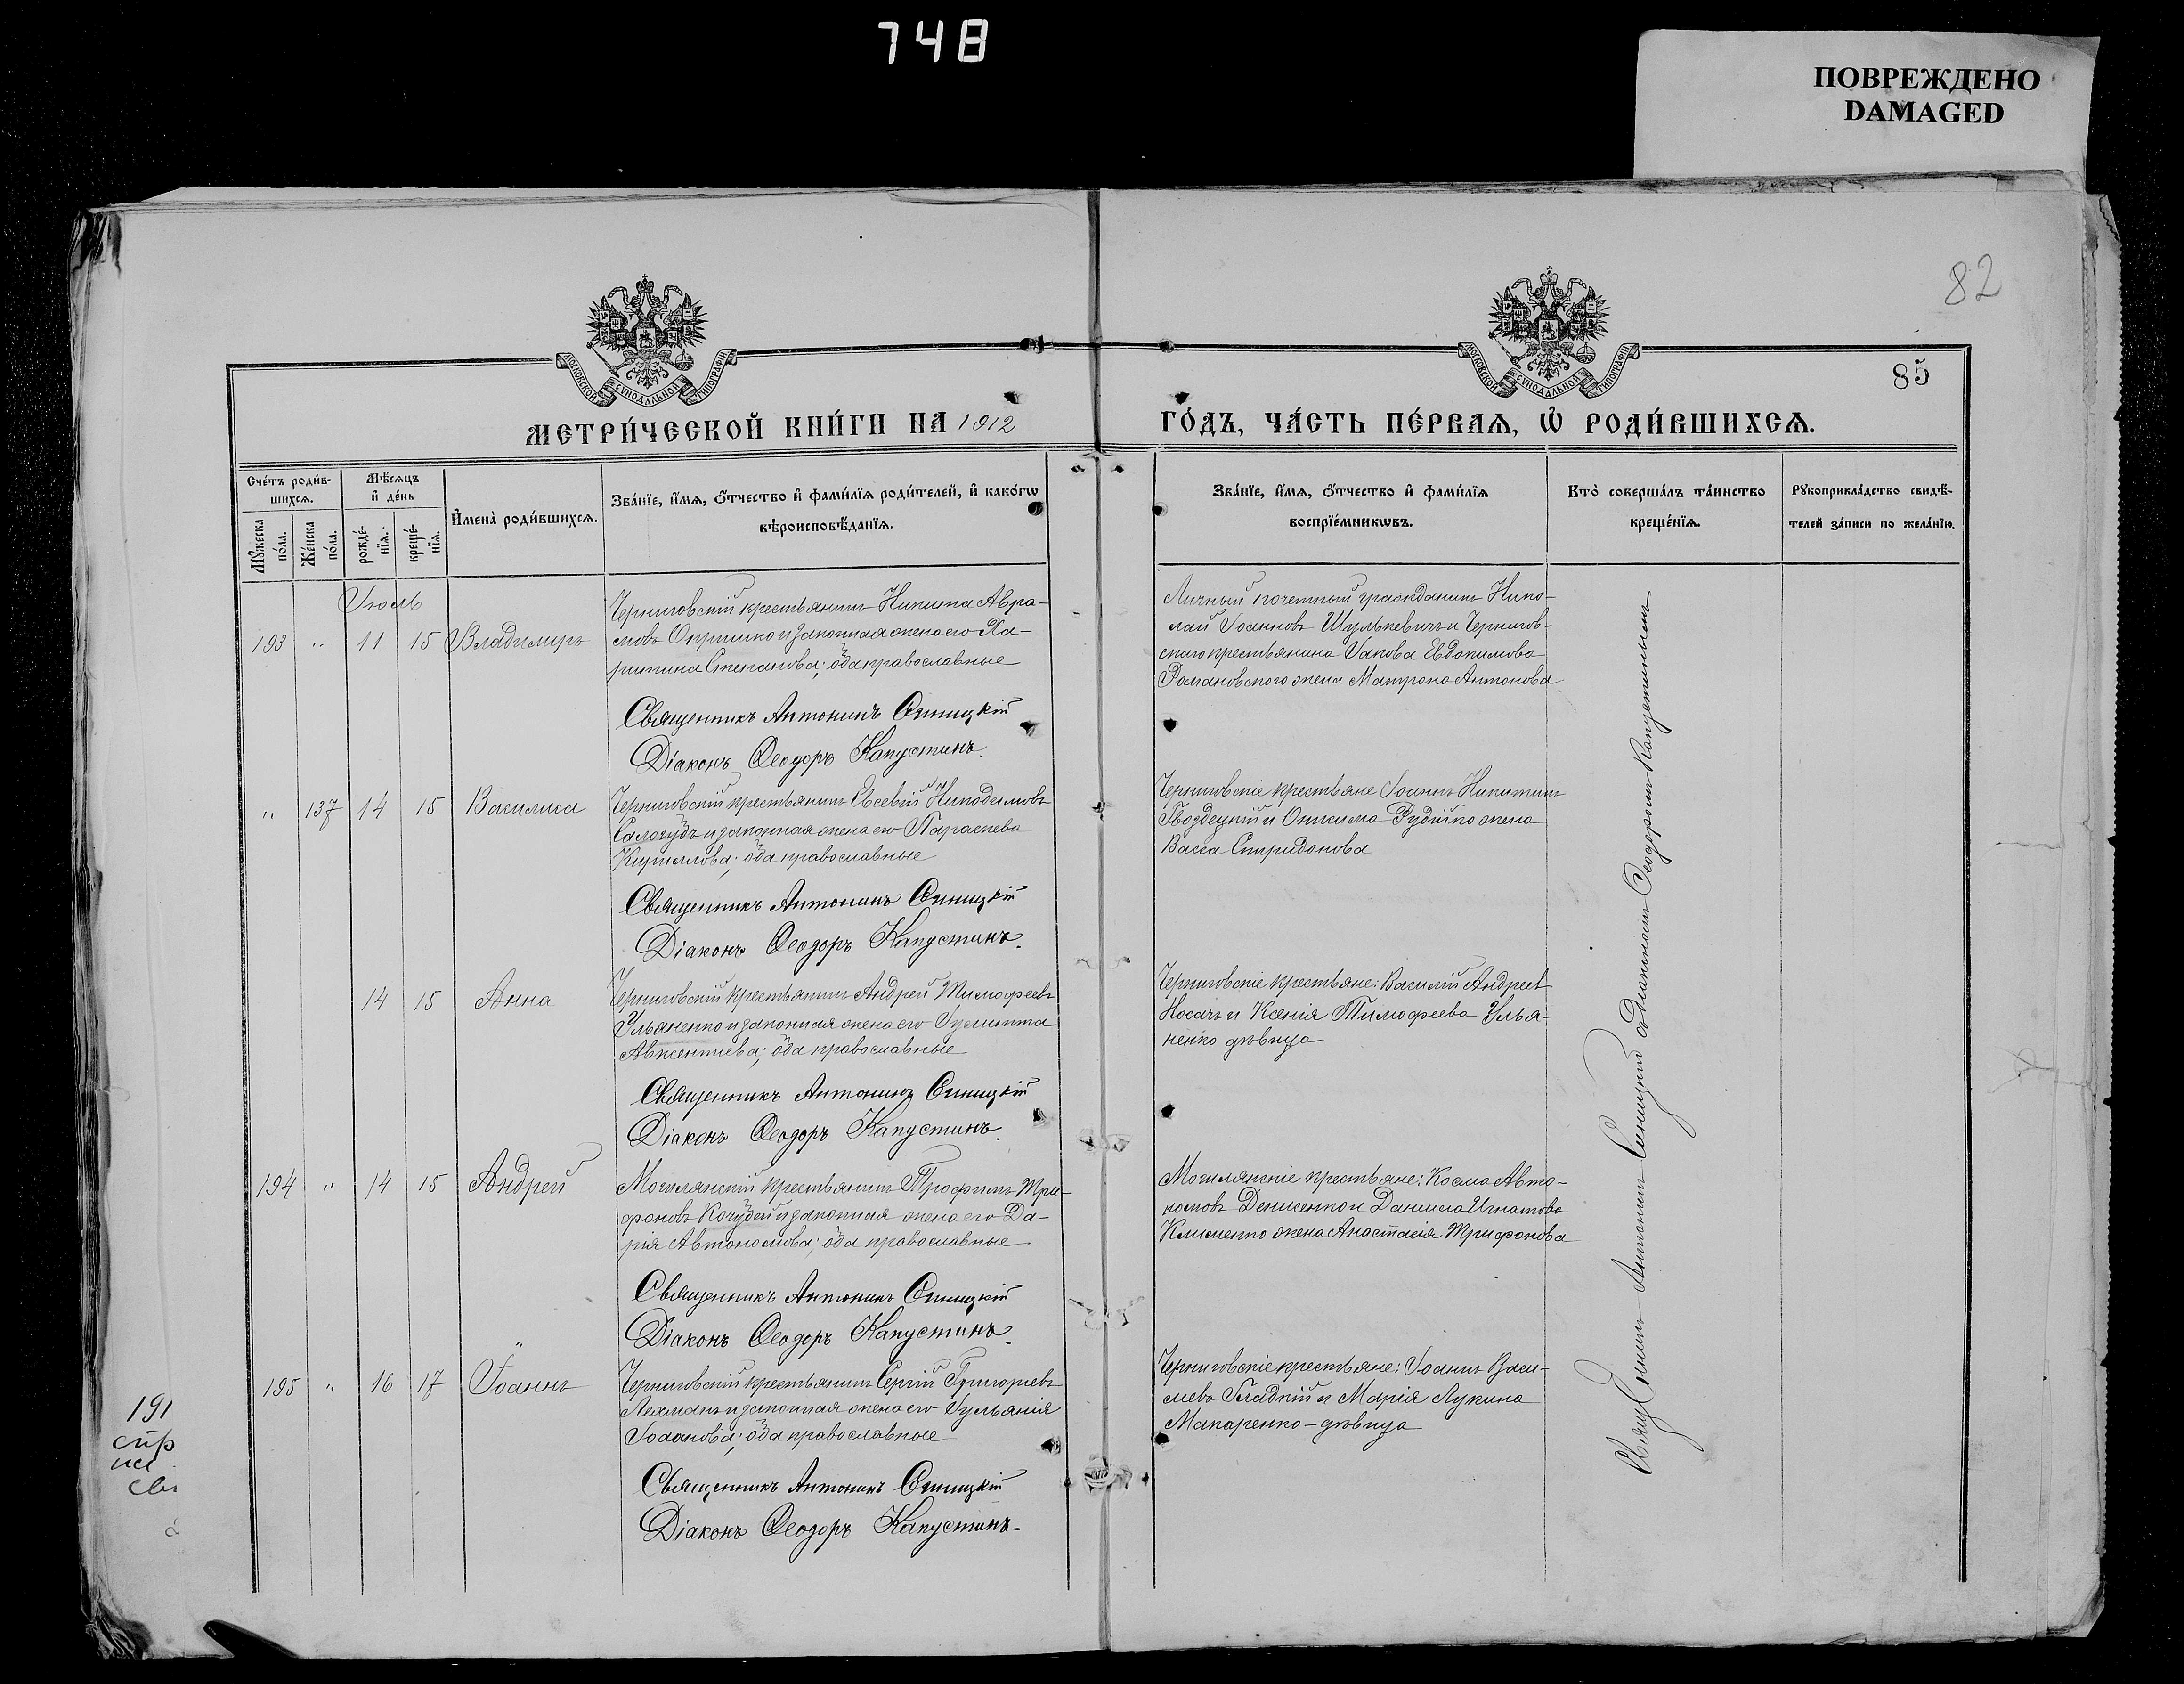 748
ПОВРЕЖДЕНО
DAMAGED
82
МОСКОВСКОЙ СѴНОДАЛЬНОЙ ТИПОГРАФІИ
МОСКОВСКОЙ СѴНОДАЛЬНОЙ ТИПОГРАФІИ
85
МЕТРИ́ЧЕСКОЙ КНИ́ГИ НА 1912
ГО́ДЪ, ЧА́СТЬ ПЕ́РВАѦ, Ѽ РОДИ́ВШИХСѦ.
Сче́тъ роди́в-
шихсѧ.
Мѣ́сѧцъ
и҆ де́нь
Мꙋ́жеска
по́ла.
Же́нска
по́ла.
рожде́-
нїѧ.
креще́-
нїѧ.
И҆мена̀ роди́вшихсѧ.
Зва́нїе, и҆́мѧ, ѻ҆́тчество и҆ фами́лїѧ роди́телей, и҆ како́гѡ
вѣроисповѣ́данїѧ.
Зва́нїе, и҆́мѧ, ѻ҆́тчество и҆ фами́лїѧ
воспрїе́мникѡвъ.
Кто̀ соверша́лъ та́инство
креще́нїѧ.
Рꙋкоприкла́дство свидѣ́-
телей за́писи по жела́нїю.
Іюль
193 " 11 15 Владимиръ
Черниговскій крестьянинъ Никита Авра-
мовъ Опришко и законная жена его Ха-
ритина Степанова; оба православные
Священникъ Антонинъ Синицкій
Діаконъ Ѳеодоръ Капустинъ.
Личный почетный гражданинъ Нико-
лай Іоанновъ Шулькевичъ и Чернигов-
скаго крестьянина Іакова Евдокимова
Романовскаго жена Матрона Антонова
" 137 14 15 Василиса
Черниговскій крестьянинъ Евсевій Никодимовъ
и законная жена его Параскева
Кириллова; оба православные
Священникъ Антонинъ Синицкій
Діаконъ Ѳеодоръ Капустинъ.
Черниговскіе крестьяне Іоаннъ Никитинъ
Гвоздецкій и Онисима Рудійко жена
Васса Спиридонова
14 15 Анна
Черниговскій крестьянинъ Андрей Тимофеевъ
Ульяненко и законная жена его Іулитта
Авксентиева; оба православные
Священникъ Антонинъ Синицкій
Діаконъ Ѳеодоръ Капустинъ.
Черниговскіе крестьяне: Василій Андреевъ
Носачъ и Ксенія Тимофеева Улья-
ненко дѣвица
194 " 14 15 Андрей
Могилянскій крестьянинъ Трофимъ Три-
фоновъ Кочубей и законная жена его Да-
рія Автономова; оба православные
Священникъ Антонинъ Синицкій
Діаконъ Ѳеодоръ Капустинъ.
Могилянскіе крестьяне: Косма Авто-
номовъ Денисенко и Даниила Игнатова
Клименко жена Анастасія Трифонова
195 " 16 17 Іоаннъ
Черниговскій крестьянинъ Сергій Григорьевъ
Лехманъ и законная жена его Іульянія
Іоаннова; оба православные
Священникъ Антонинъ Синицкій
Діаконъ Ѳеодоръ Капустинъ-
Черниговскіе крестьяне: Іоаннъ Васи-
льевъ Гладкій и Марія Лукина
Макаренко - дѣвица
Антонинъ Синицкій съ Діакономъ Ѳеодоромъ Капустинымъ
191